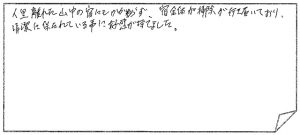 人里離れた山中の宿にもかかわらず、宿全体が掃除が行き届いており、
清潔に保たれている事に好感が持てました。